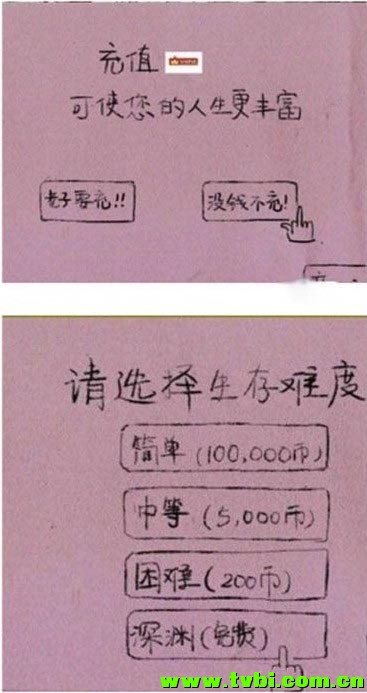 充值
可使您的人生更丰富
老子要充!!
没钱不充!
请选择生存难度
简单(100,000币)
中等(5,000币)
困难(200币)
深渊(免费)
www.tvbi.com.cn